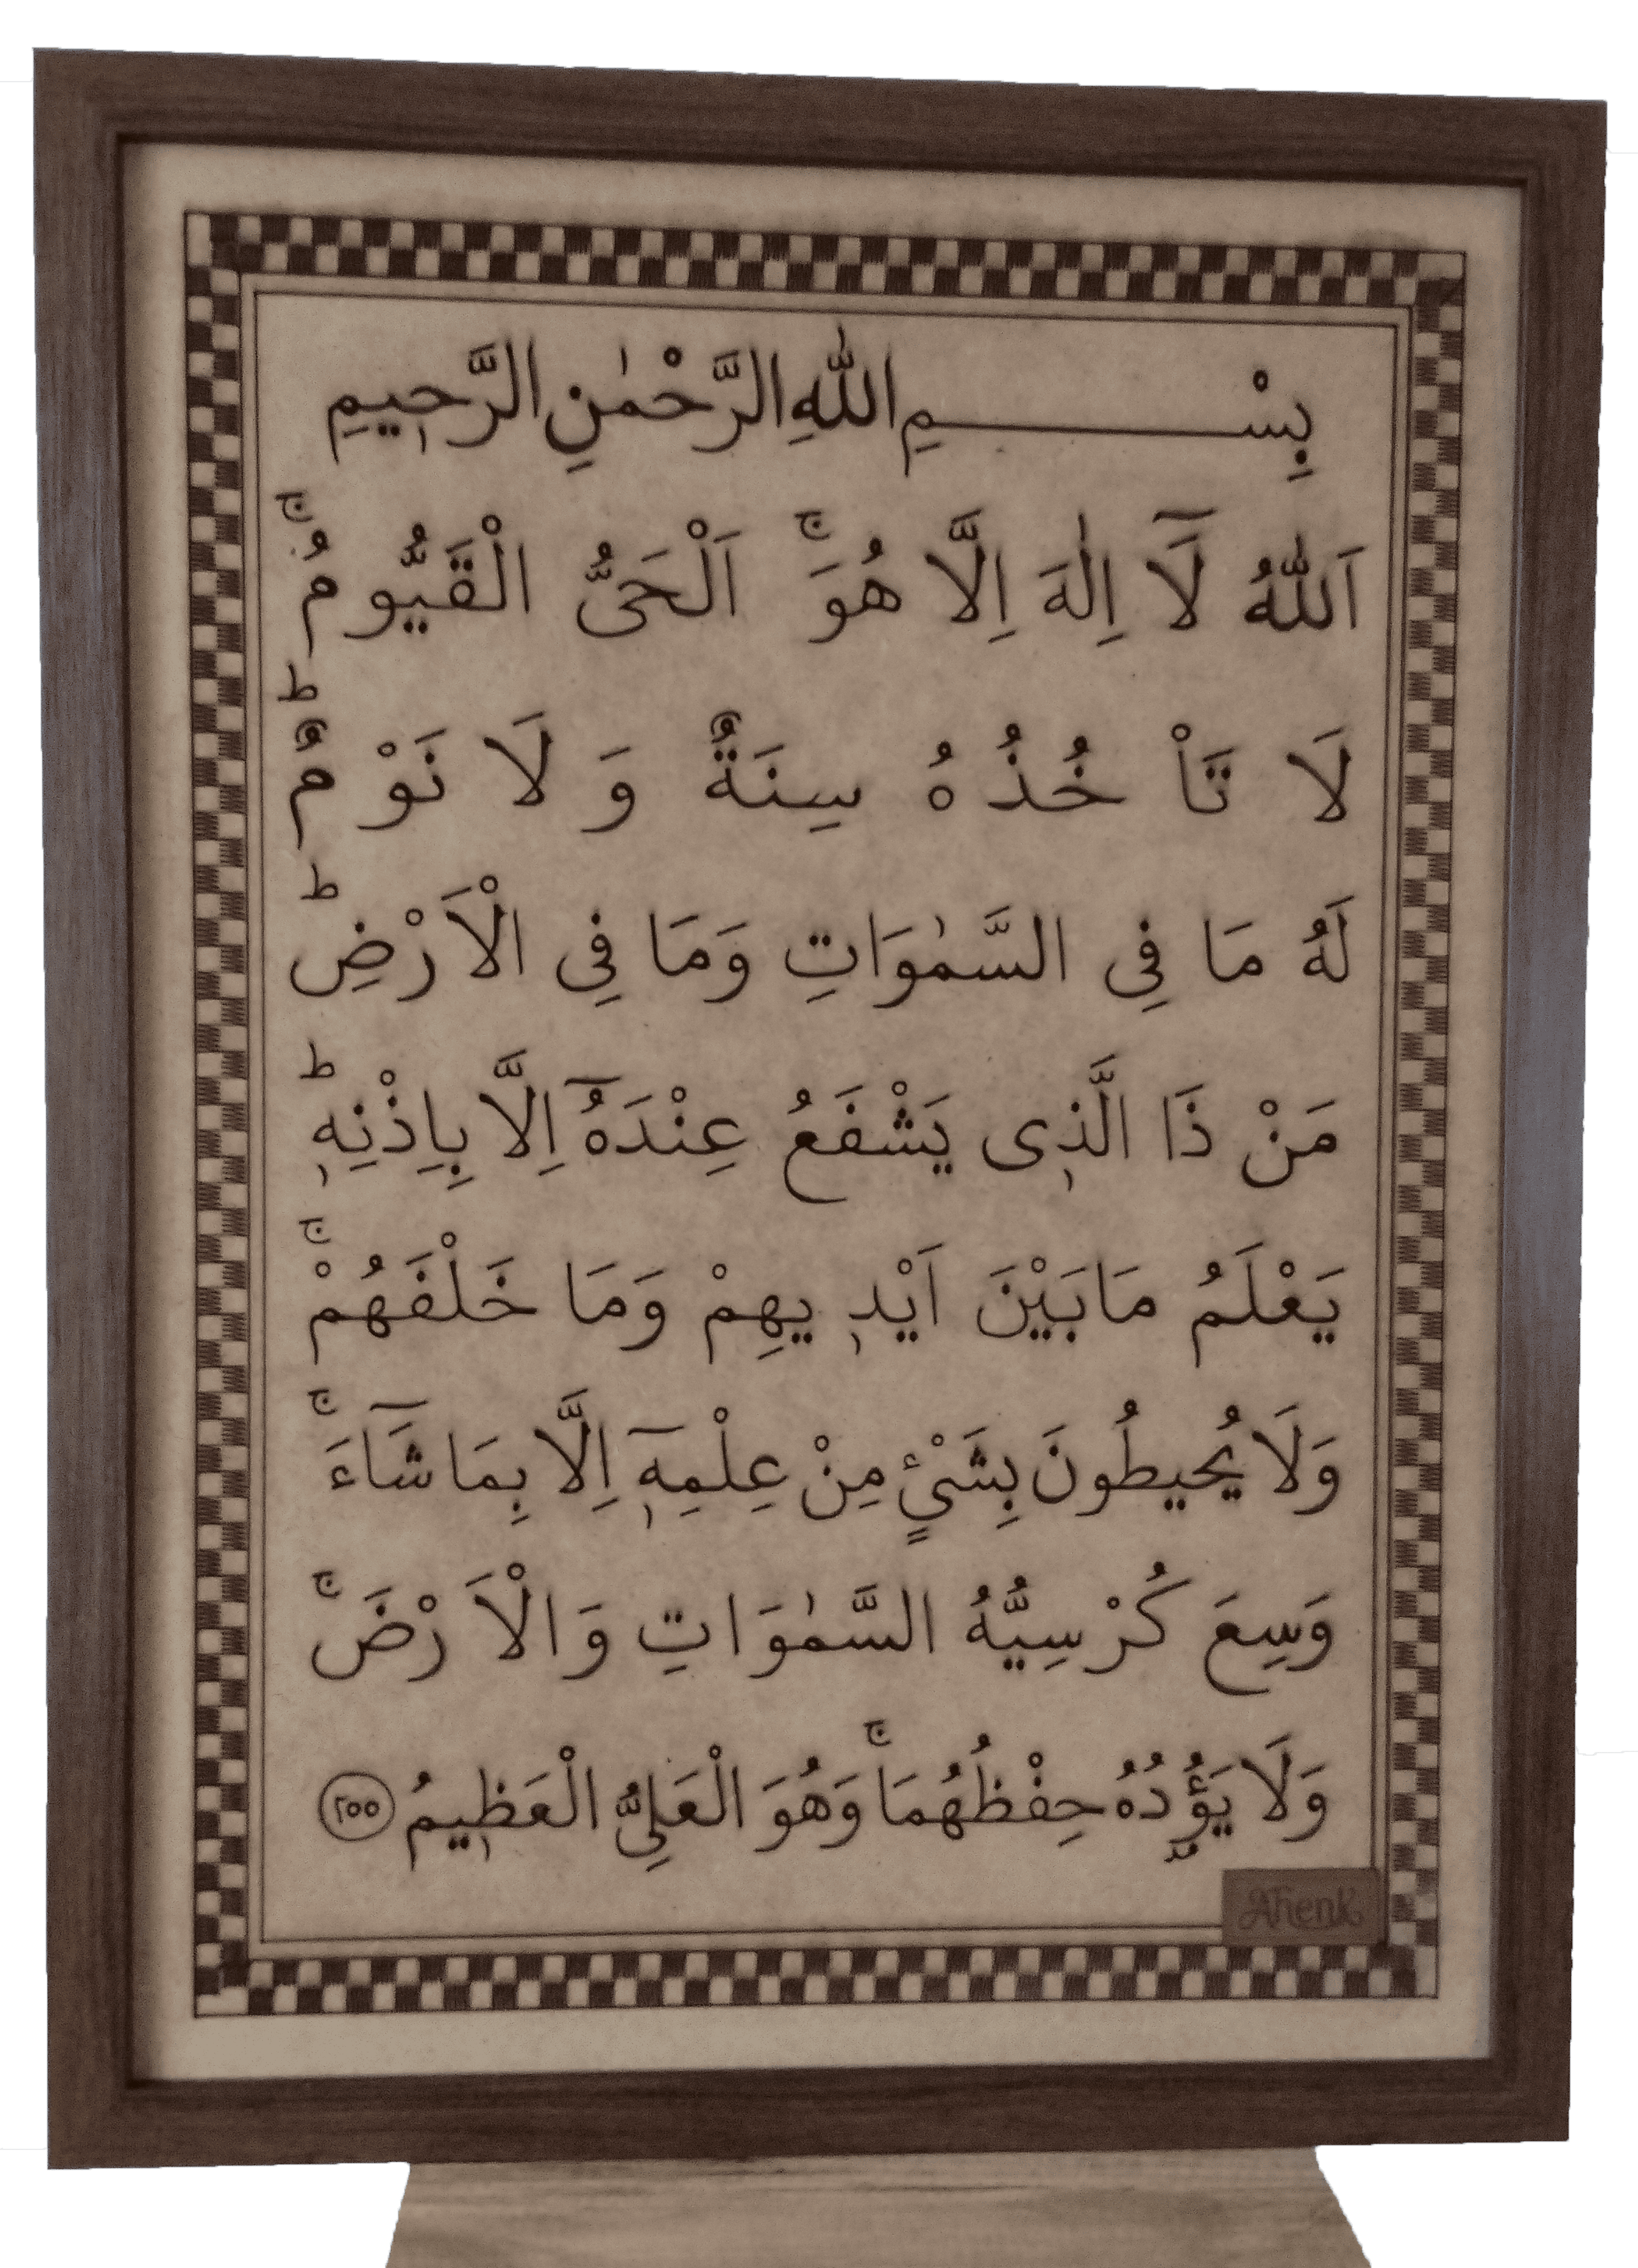 بِسْــــــــمِ اللّٰهِ الرَّحْمٰنِ الرَّحٖيمِ
اَللّٰهُ لَآ اِلٰهَ اِلَّا هُوَۚ اَلْحَىُّ الْقَيُّومُۚ
لَا تَاْ خُذُ هُ سِنَةٌ وَ لَا نَوْ مٌؕ
لَهُ مَا فِى السَّمٰوَاتِ وَمَا فِى الْاَرْضِؕ
مَنْ ذَا الَّذٖى يَشْفَعُ عِنْدَهُٓ اِلَّا بِاِذْنِهٖؕ
يَعْلَمُ مَابَيْنَ اَيْدٖ يهِمْ وَمَا خَلْفَهُمْۚ
وَلَا يُحيطُونَ بِشَىْءٍ مِنْ عِلْمِهٖٓ اِلَّا بِمَا شَآءَۚ
وَسِعَ كُرْ سِيُّهُ السَّمٰوَ اتِ وَ الْاَ رْضَۚ
وَلَا يَؤُ۫دُهُ حِفْظُهُمَاۚ وَهُوَ الْعَلِىُّ الْعَظٖيمُ ٢٥٥
AHenk